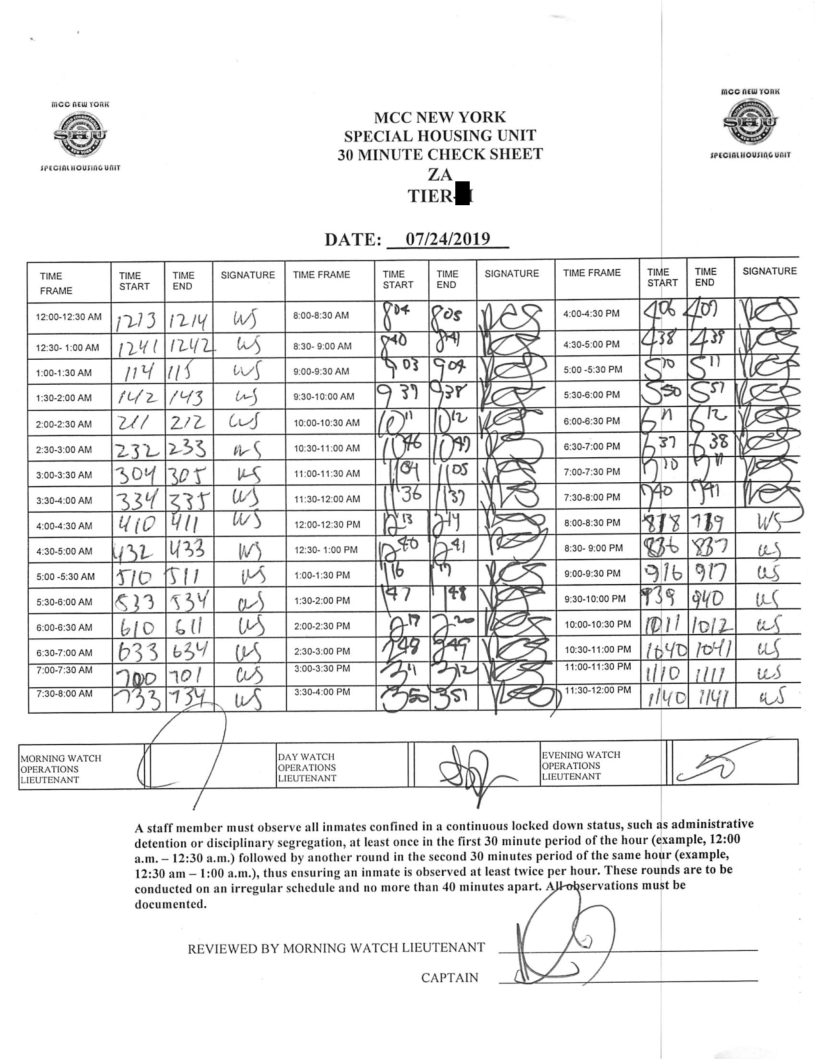 MCC NEW YORK
SHU
SPECIAL HOUSING UNIT
MCC NEW YORK
SHU
SPECIAL HOUSING UNIT
MCC NEW YORK
SPECIAL HOUSING UNIT
30 MINUTE CHECK SHEET
ZA
TIER-
DATE: 07/24/2019
TIME FRAME TIME START TIME END SIGNATURE TIME FRAME TIME START TIME END SIGNATURE TIME FRAME TIME START TIME END SIGNATURE
12:00-12:30 AM 1213 1214 8:00-8:30 AM 804 805 4:00-4:30 PM 406 407
12:30- 1:00 AM 1241 1242 8:30- 9:00 AM 840 841 4:30-5:00 PM 438 439
1:00-1:30 AM 114 115 9:00-9:30 AM 903 904 5:00 -5:30 PM 510 511
1:30-2:00 AM 142 143 9:30-10:00 AM 937 938 5:30-6:00 PM 550 551
2:00-2:30 AM 211 212 10:00-10:30 AM 1011 1012 6:00-6:30 PM 611 612
2:30-3:00 AM 232 233 10:30-11:00 AM 1046 1047 6:30-7:00 PM 737 738
3:00-3:30 AM 304 305 11:00-11:30 AM 1104 1105 7:00-7:30 PM 710 711
3:30-4:00 AM 334 335 11:30-12:00 AM 1136 1137 7:30-8:00 PM 740 741
4:00-4:30 AM 410 411 12:00-12:30 PM 1213 1214 8:00-8:30 PM
4:30-5:00 AM 432 433 12:30- 1:00 PM 1240 1241 8:30- 9:00 PM 836 837
5:00 -5:30 AM 510 511 1:00-1:30 PM 116 117 9:00-9:30 PM 916 917
5:30-6:00 AM 533 534 1:30-2:00 PM 147 148 9:30-10:00 PM 939 940
6:00-6:30 AM 610 611 2:00-2:30 PM 219 220 10:00-10:30 PM 1011 1012
6:30-7:00 AM 633 634 2:30-3:00 PM 248 249 10:30-11:00 PM 1040 1041
7:00-7:30 AM 700 701 3:00-3:30 PM 311 312 11:00-11:30 PM 1110 1111
7:30-8:00 AM 733 734 3:30-4:00 PM 350 351 11:30-12:00 PM 1140 1141
MORNING WATCH OPERATIONS LIEUTENANT
DAY WATCH OPERATIONS LIEUTENANT
EVENING WATCH OPERATIONS LIEUTENANT
A staff member must observe all inmates confined in a continuous locked down status, such as administrative
detention or disciplinary segregation, at least once in the first 30 minute period of the hour (example, 12:00
a.m. – 12:30 a.m.) followed by another round in the second 30 minutes period of the same hour (example,
12:30 am – 1:00 a.m.), thus ensuring an inmate is observed at least twice per hour. These rounds are to be
conducted on an irregular schedule and no more than 40 minutes apart. All observations must be
documented.
REVIEWED BY MORNING WATCH LIEUTENANT
CAPTAIN